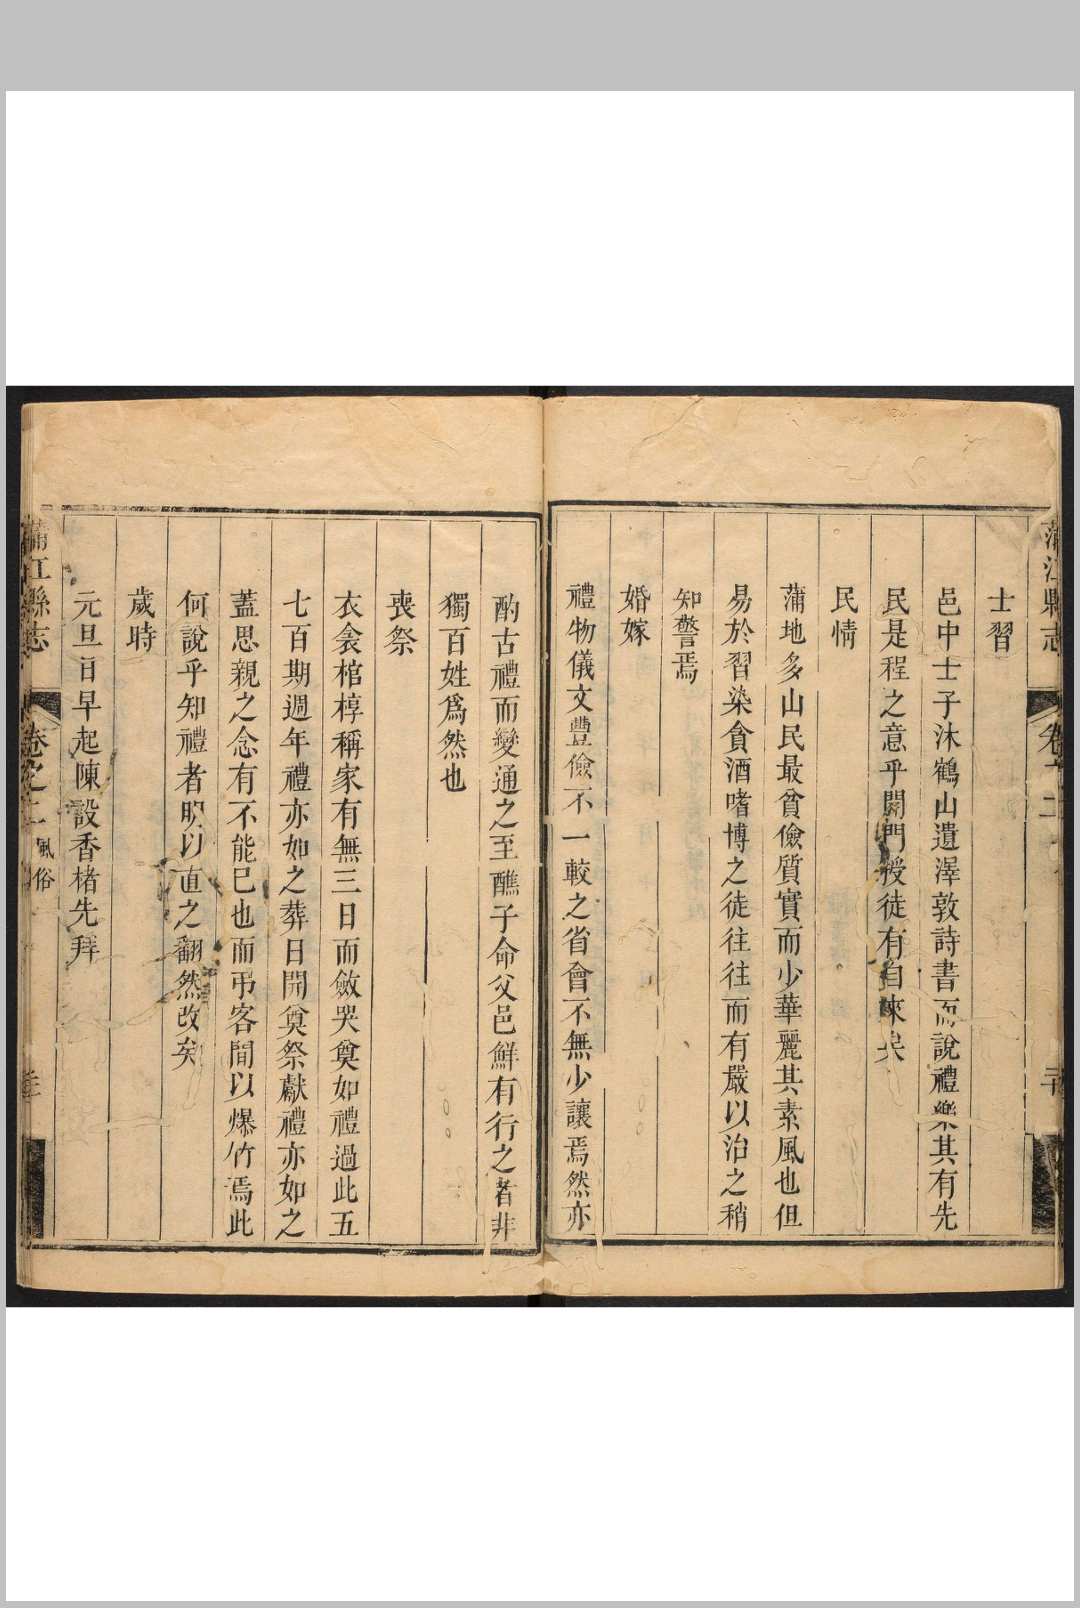 蒲江縣志
士習
邑中士子沐鶴山遺澤敦詩書而說禮樂其有先
民是程之意乎閉門授徒有自來矣
民情
蒲地多山民最貧儉質實而少華麗其素風也但
易於習染貪酒嗜博之徒往往而有嚴以治之稍
知警焉
婚嫁
禮物儀文豐儉不一較之省會不無少讓焉然亦
酌古禮而變通之至醮子命父邑鮮有行之者非
獨百姓爲然也
喪祭
衣衾棺椁稱家有無三日而斂哭奠如禮過此五
七百期週年禮亦如之葬日開奠祭獻禮亦如之
蓋思親之念有不能已也而弔客間以爆竹焉此
何說乎知禮者明以直之翻然改矣
歲時
元旦日早起陳設香楮先拜
蒲江縣志 卷之二 風俗